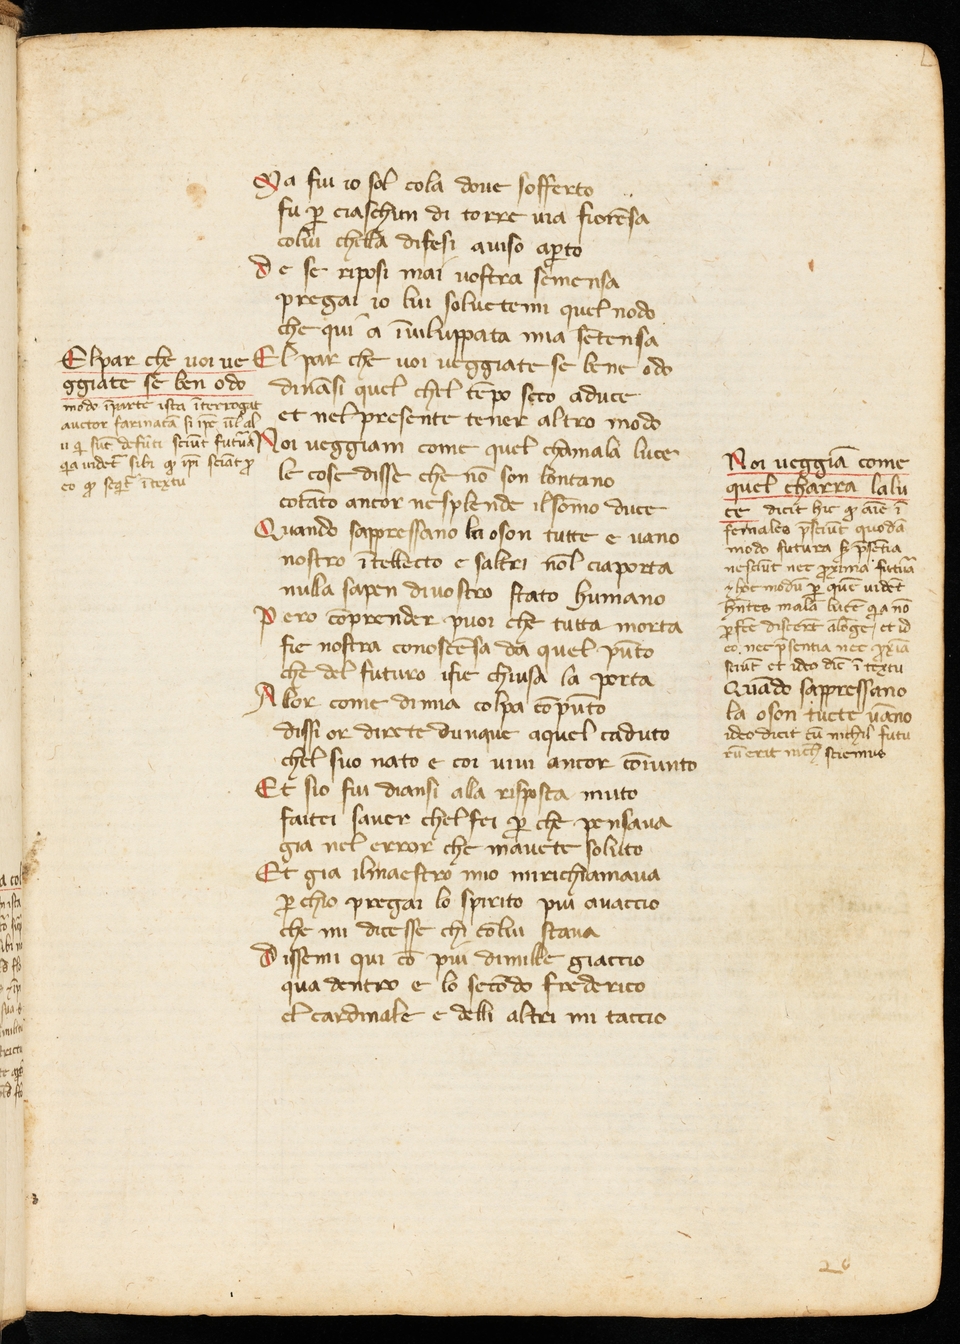 Ma fui io sol cola doue sofferto
fu ꝑ ciaschun di torre uia fiorēsa
colui chella difesi a uiso aꝑto
De se riposi mai uostra semensa
pregai io lui soluetemi quel nodo
che qui a īuiluppata mia sētensa
El par che uoi ueggiate se bene odo
dināsi quel chel tēpo seco aduce
et nel presente tener altro modo
Noi ueggiam come quel chamala luce
le cose disse che nō son lontano
cotāto ancor ne splende il sōmo duce
Quando sappressano o son tutte e uano
nostro ītellecto e saltri nol ciaporta
nulla sapen di uostro stato humano
Pero cōprender puoi che tutta morta
fie nostra conoscēsa da quel pūto
che del futuro ifie chiusa la porta
Allor come di mia colpa cōpūto
dissi or direte dunque a quel caduto
chel suo nato e coi uiui ancor cōiunto
Et sio fui diansi alla risposta muto
faitei sauer chel fei ꝑ che pensaua
gia nel error che mauete soluto
Et gia il maestro mio mi richiamaua
ꝑ chio pregai lo spirito piu auaccio
che mi dicesse chi cō lui staua
Dissemi qui cō piu di mille giaccio
qua dentro e lo secōdo frederico
el cardinale e delli altri mi taccio
El par che uoi ue
ggiate se ben odo
modo ī parte ista īterrogat
auctor farinatā si ipe uel al
ii qui sūt defūti sciūt futura
quia uidet sibi quod ipi sciāt
eo quod sequit ī textu
Noi ueggiā come
quel charra la lu
ce dicit hic quod aīe ī
fernales p̄sciūt quodā
modo futura sꝫ p̄sētia
nesciūt nec proxima futura
et hoc modū ꝑ quē uidēt
hn̄tes malā lucē quia nō
ꝑfcē discernt a lōge et id
eo nec presentia nec
sciūt et ideo dic ī textu
Quādo sappressano
la o son tucte uāno
ideo dicit cū nichil futu
rū erit nich sciemus
20